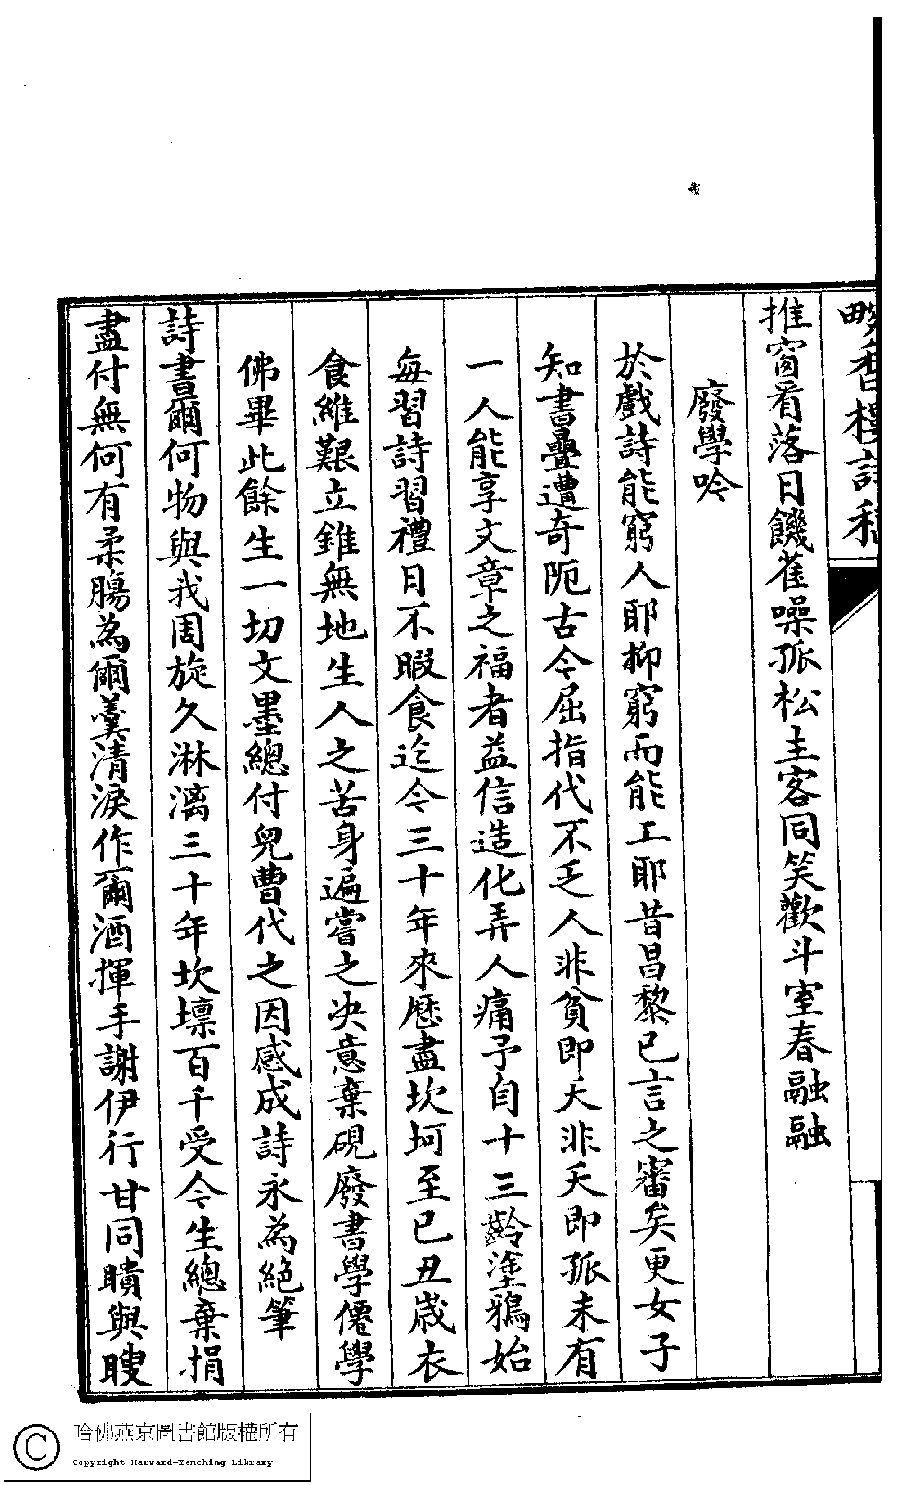 推窗看落日饑雀噪孤松主客同笑歡斗室春融融
廢學吟
於戲詩能窮人耶抑窮而能工耶昔昌黎已言之審矣更女子
知書疊遭奇阨古今屈指代不乏人非貧即夭非夭即孤未有
一人能享文章之福者益信造化弄人痛予自十三齡塗鴉始
每習詩習禮日不暇食迄今三十年來歷盡坎坷至己丑歲衣
食維艱立錐無地生人之苦身遍嘗之決意棄硯廢書學僊學
佛畢此餘生一切文墨總付兒曹代之因感成詩永為絕筆
詩書爾何物與我周旋久淋漓三十年坎壈百千受今生總棄捐
盡付無何有柔腸為爾羹清淚作爾酒揮手謝伊行甘同瞶與瞍
哈佛燕京圖書館版權所有
Copyright Harvard-Yenching Library